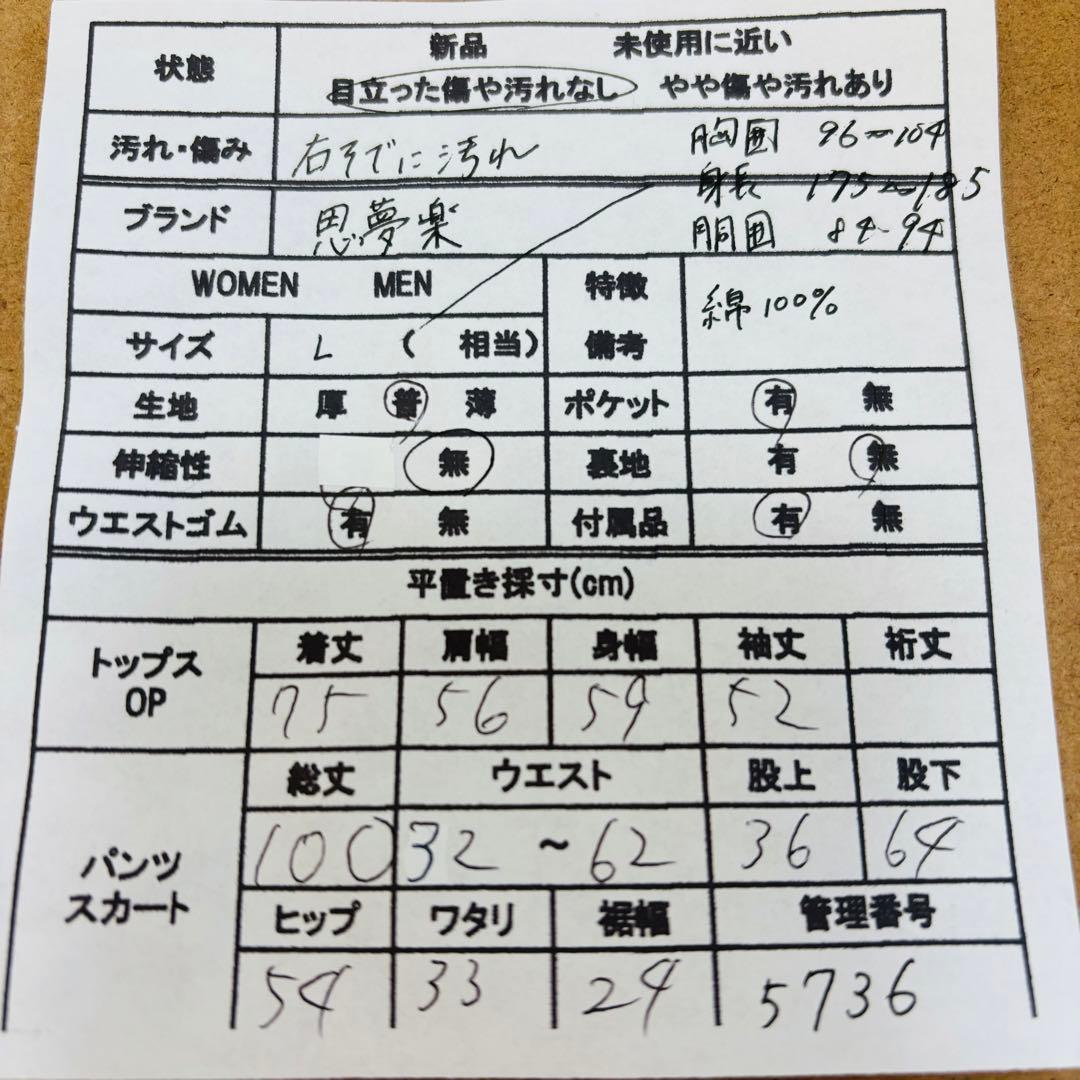 状態 新品 未使用に近い
目立った傷や汚れなし やや傷や汚れあり
汚れ・傷み 右そでに汚れ 胸囲 96~104
身長 175~185
ブランド 思夢楽 胴囲 84~94
WOMEN MEN 特徴 綿100%
サイズ L ( 相当) 備考
生地 厚 普 薄 ポケット 有 無
伸縮性 無 裏地 有 無
ウエストゴム 有 無 付属品 有 無
平置き採寸(cm)
トップス 着丈 肩幅 身幅 袖丈 裄丈
OP 75 56 59 52
総丈 ウエスト 股上 股下
パンツ 100 32 ~ 62 36 64
スカート ヒップ ワタリ 裾幅 管理番号
54 33 24 5736